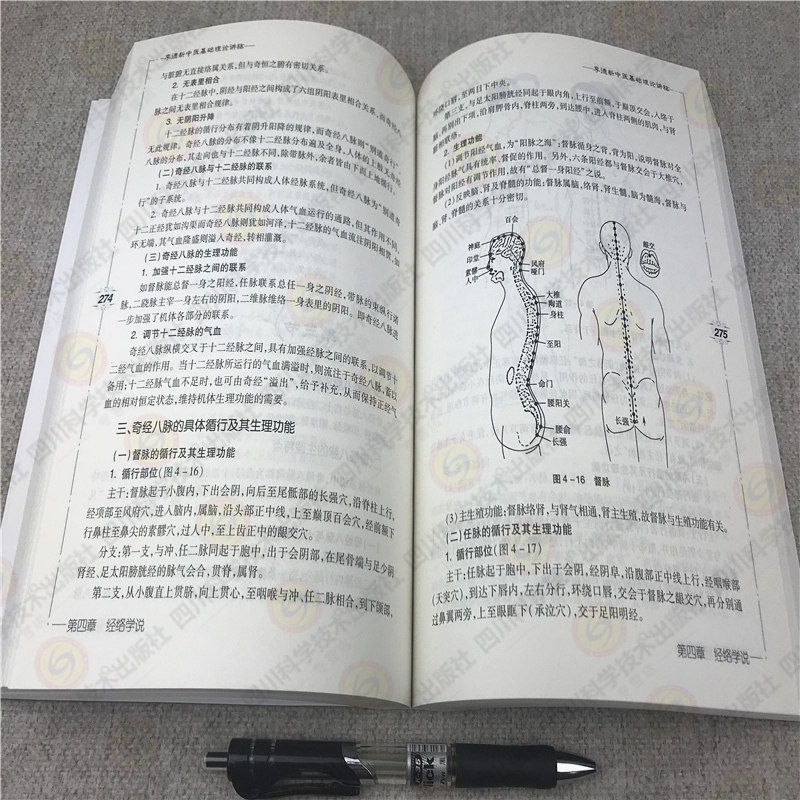 李德新中医基础理论讲稿
与脏腑无直接络属关系,但与奇恒之腑有密切关系。
2. 无表里相合
在十二经脉中,阴经与阳经之间构成了六组阴阳表里相合关系,而奇经八
脉之间无表里相合规律。
3. 无阴阳升降
十二经脉的循行分布有着阴升阳降的规律,而奇经八脉则“别道奇行”
无此规律。奇经八脉的分布不像十二经脉分布遍及全身,人体的上肢无奇经
八脉的分布,其走向也与十二经脉不同,除带脉外,余者皆由下而上地循行。
(二)奇经八脉与十二经脉的联系
1. 奇经八脉与十二经脉共同构成人体经脉系统,但奇经八脉为“别道奇
行”的子系统。
2. 奇经八脉与十二经脉共同构成人体气血运行的通路,但其作用不同,
十二正经犹如沟渠而奇经八脉则犹如河泽,十二经脉的气血流注阴阳相贯,如
环无端,其气血隆盛则溢入奇经,转相灌溉。
(三)奇经八脉的生理功能
1. 加强十二经脉之间的联系
如督脉能总督一身之阳经,任脉联系总任一身之阴经,带脉约束纵行诸
脉,二跷脉主宰一身左右的阴阳,二维脉维络一身表里的阴阳。即奇经八脉进
一步加强了机体各部分的联系。
2. 调节十二经脉的气血
奇经八脉纵横交叉于十二经脉之间,具有加强经脉之间的联系,以调节十
二经气血的作用。当十二经脉所运行的气血满溢时,则流注于奇经八脉,蓄以
备用;十二经脉气血不足时,也可由奇经“溢出”,给予补充,从而保持正经气
血的相对恒定状态,维持机体生理功能的需要。
三、奇经八脉的具体循行及其生理功能
(一)督脉的循行及其生理功能
1. 循行部位(图4-16)
主干:督脉起于小腹内,下出会阴,向后至尾骶部的长强穴,沿脊柱上行,
经项部至风府穴,进入脑内,属脑,沿头部正中线,上至巅顶百会穴,经前额下
行鼻柱至鼻尖的素髎穴,过人中,至上齿正中的龈交穴。
分支:第一支,与冲、任二脉同起于胞中,出于会阴部,在尾骨端与足少阴
肾经、足太阳膀胱经的脉气会合,贯脊,属肾。
第二支,从小腹直上贯脐,向上贯心,至咽喉与冲、任二脉相合,到下颌部,
274
第四章 经络学说
李德新中医基础理论讲稿
环绕口唇,至两目下中央。
第三支,与足太阳膀胱经同起于眼内角,上行至前额,于巅顶交会,入络于
脑,再别出下项,沿肩胛骨内,脊柱两旁,到达腰中,进入脊柱两侧的肌肉,与肾
脏相联络。
2. 生理功能
(1)调节阳经气血,为“阳脉之海”:督脉循身之背,背为阳,说明督脉对全
身阳经脉气具有统率、督促的作用。另外,六条阳经都与督脉交会于大椎穴,
督脉对阳经有调节作用,故有“总督一身阳经”之说。
(2)反映脑、肾及脊髓的功能:督脉属脑,络肾,肾生髓,脑为髓海,督脉与
脑、肾、脊髓的关系十分密切。
百会
神庭
印堂
素髎
人中
风府
哑门
大椎
陶道
身柱
至阳
命门
腰阳关
腰俞
长强
龈交
长强
图4-16 督脉
(3)主生殖功能:督脉络肾,与肾气相通,肾主生殖,故督脉与生殖功能有关。
(二)任脉的循行及其生理功能
1. 循行部位(图4-17)
主干:任脉起于胞中,下出于会阴,经阴阜,沿腹部正中线上行,经咽喉部
(天突穴),到达下唇内,左右分行,环绕口唇,交会于督脉之龈交穴,再分别通
过鼻翼两旁,上至眼眶下(承泣穴),交于足阳明经。
275
第四章 经络学说
四川科学技术出版社